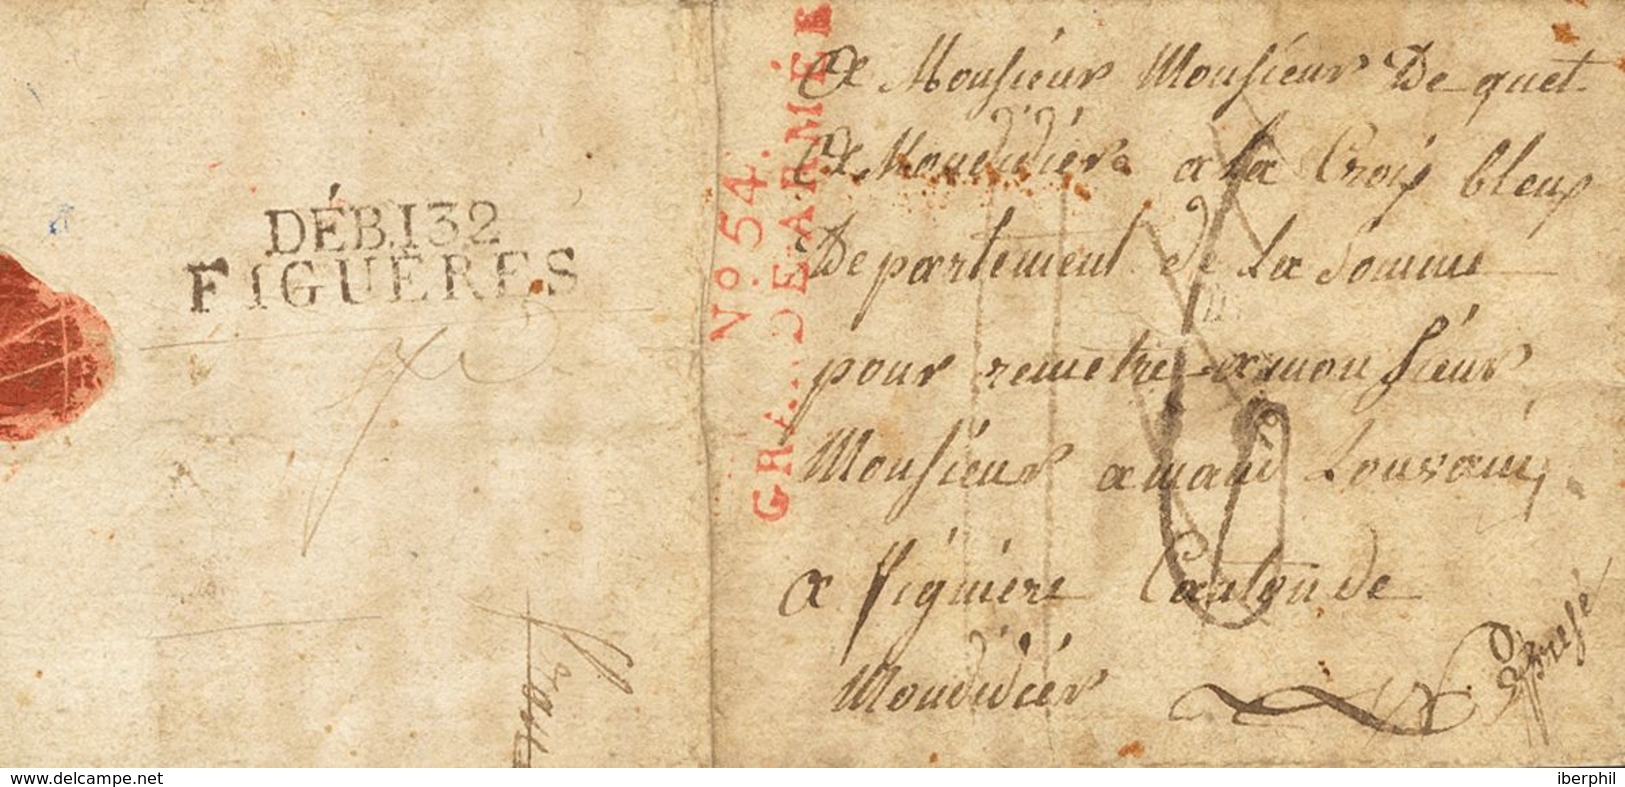 DÉB.132
FIGUÈRES
No. 54.
GRANDE ARMÉE
A Monsieur Monsieur De quet
A Mondidiér a la Croix bleux
Departement de La Somme
pour remetre a monsieur
Monsieur amand Louvain,
a figuiere
Mondidiér
www.delcampe.net
iberphil